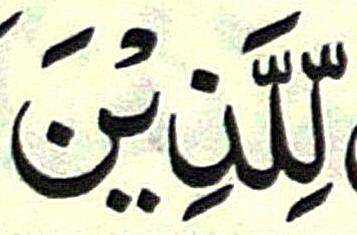 لِّلَّذِيْنَ